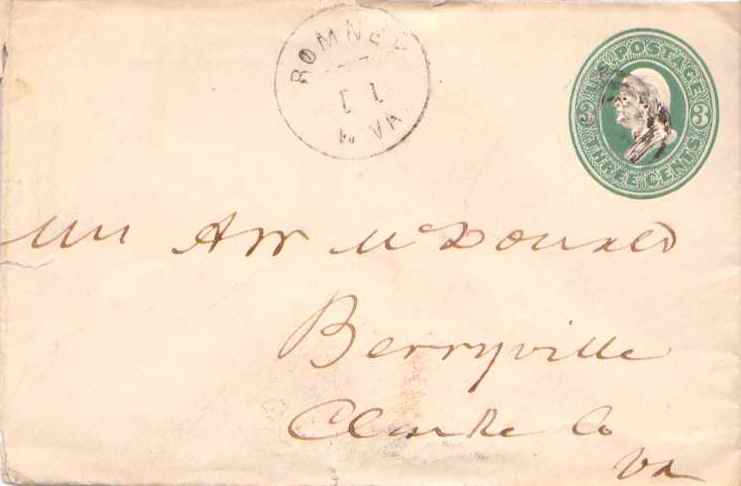 ROMNEY
W VA
U.S. POSTAGE
3 3
THREE CENTS
Mr A W McDonald
Berryville
Clarke Co
Va